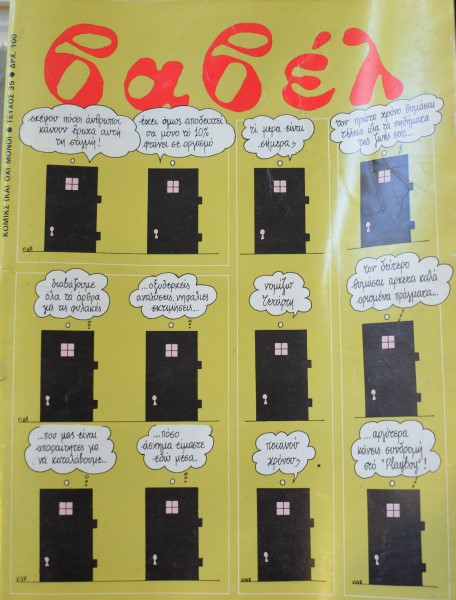 βαβέλ
ΚΟΜΙΚΣ (ΚΑΙ ΟΧΙ ΜΟΝΟ) ● ΤΕΥΧΟΣ 35 ● ΔΡΧ. 100
σκέψου πόσοι άνθρωποι
κάνουν έρωτα αυτή
τη στιγμή!
έχει όμως αποδειχτεί
ότι μόνο το 10%
φτάνει σε οργασμό
τί μέρα είναι
σήμερα;
τον πρώτο χρόνο θυμάσαι
τέλεια όλα τα πηδήματα
της ζωής σου...
διαβάζουμε
όλα τα άρθρα
για τις φυλακές
...οξυδερκείς
αναλύσεις, νηφάλιες
εκτιμήσεις...
νομίζω
Τετάρτη
τον δεύτερο
θυμάσαι αρκετά καλά
ορισμένα πράγματα...
...που μας είναι
απαραίτητες για
να καταλάβουμε...
...πόσο
άσχημα είμαστε
εδώ μέσα.
ποιανού
χρόνου;
...αργότερα
κάνεις συνδρομή
στο "Playboy"!